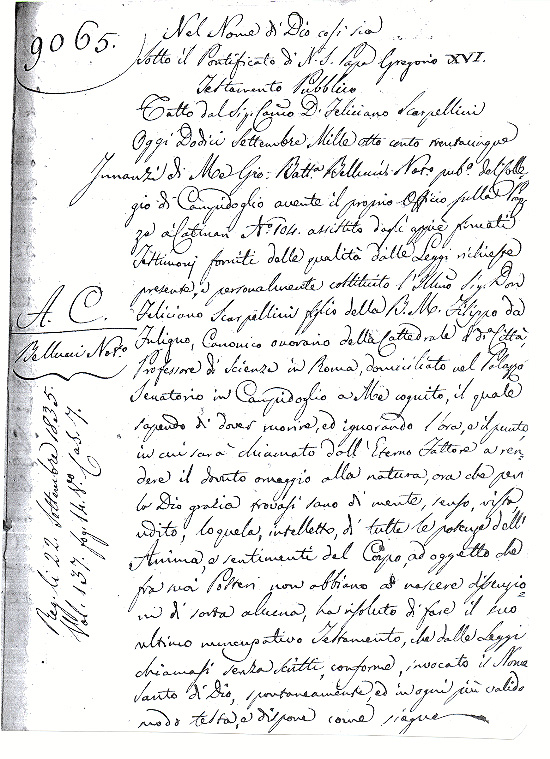 9065.
Nel Nome di Dio così sia
Sotto il Pontificato di N. S. Papa Gregorio XVI.
Testamento Pubblico
Fatto dal Sig. Cano D. Feliciano Scarpellini
Oggi Dodici Settembre Mille otto cento trentacinque
Innanzi di Me Gio: Batta Bellucci Noto pubo del Colle=
gio di Campidoglio avente il proprio Officio sulla Piaz
za a Catinari No 104. assistito dagli appiè firmati
Testimonj forniti delle qualità dalle Leggi richieste
presente, e personalmente costituito l'Illmo Sig. Don
Feliciano Scarpellini figlio della B. M. Filippo da
Fuligno, Canonico onorario della Cattedrale di Città,
Professore di Scienze in Roma, domiciliato nel Palazzo
Senatorio in Campidoglio a Me cognito, il quale
sapendo di dover morire, ed ignorando l'ora, e il punto
in cui sarà chiamato dall'Eterno Fattore a ren=
dere il dovuto omaggio alla natura, ora che per
lo Dio grazia trovasi sano di mente, senso, vista
udito, loquela, intelletto, di tutte le potenze dell'
Anima, e sentimenti del Corpo, ad oggetto che
fra suoi Posteri non abbiano a nascere dispuzio=
ni di sorta alcuna, ha risoluto di fare il suo
ultimo nuncupativo Testamento, che dalle Leggi
chiamasi senza scritti, conforme, invocato il Nome
Santo di Dio, spontaneamente, ed in ogni più valido
modo testa, e dispone come siegue
A. C.
Bellucci Noto
Reg. li 22. Settembre 1835.
Vol. 137. fog. 14. 80 Cas. 7.